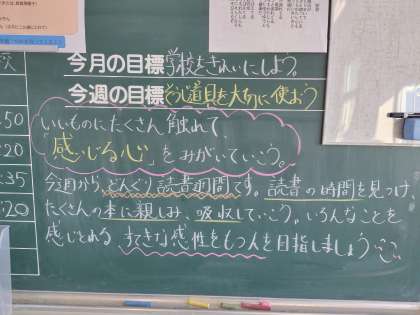 今月の目標 学校をきれいにしよう。
今週の目標 そうじ道具を大切に使おう
いいものにたくさん触れて、
「感じる心」をみがいていこう。
今週から、どんぐり読書週間です。読書の時間を見つけ、
たくさんの本に親しみ、吸収していこう。いろんなことを
感じとれる、すてきな感性をもつ人を目指しましょう
50
20
35
20